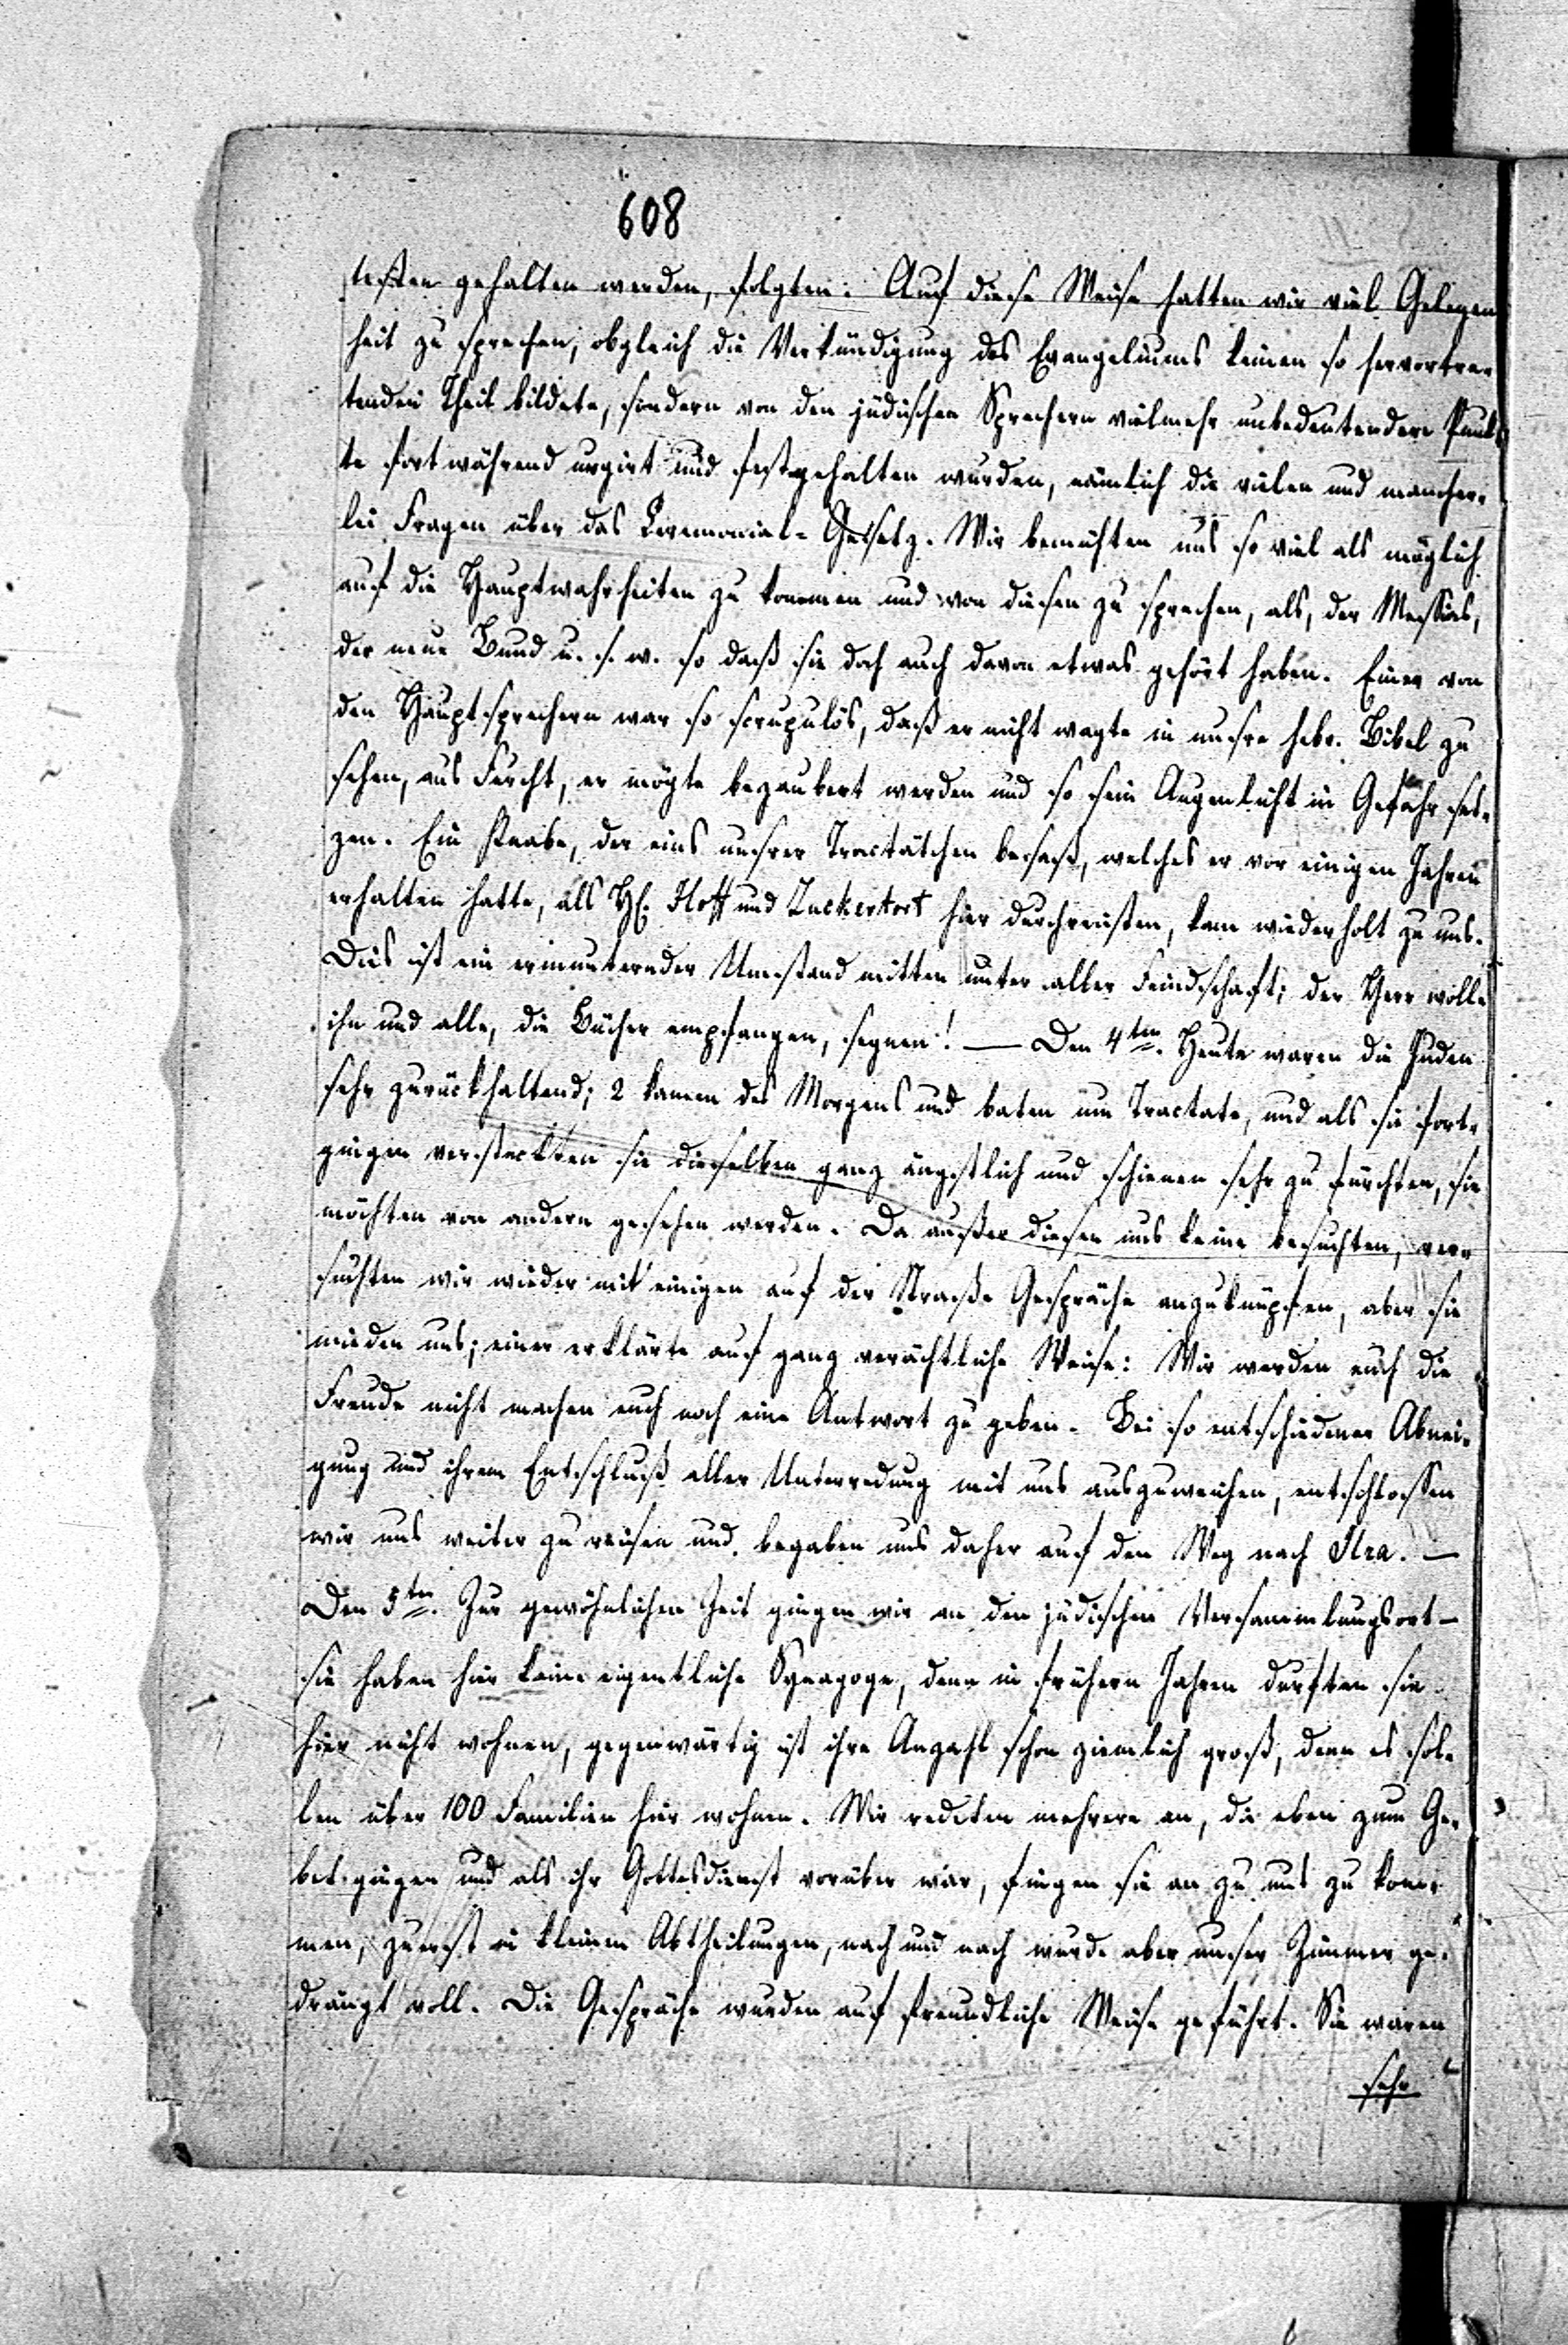 608
testen gehalten werden, folgten. Auf diese Weise hatten wir viel Gelegen
heit zu sprechen, obgleich die Verkündigung des Evangeliums keinen so hervortre-
tenden Theil bildete, sondern von den jüdischen Sprechern vielmehr unbedeutendere Punk
te fortwährend urgirt und festgehalten wurden, nämlich die vielen und mancher-
lei Fragen über das Ceremonial-Gesetz. Wir bemühten uns so viel als möglich
auf die Hauptwahrheiten zu kommen und von diesen zu sprechen, als, der Messias,
der neue Bund u. s. w. so daß sie doch auch davon etwas gehört haben. Einer von
den Hauptsprechern war so scrupulös, daß er nicht wagte in unsre hebr. Bibel zu
sehen, aus Furcht, er mögte bezaubert werden und so sein Augenlicht in Gefahr set-
zen. Ein Knabe, der eins unsrer Tractätchen besaß, welches er vor einigen Jahren
erhalten hatte, als H. Hoff und Zuckertort hier durchreisten, kam wiederholt zu uns.
Dies ist ein ermunternder Umstand mitten unter aller Feindschaft; der Herr wolle
ihn und alle, die Bücher empfangen, segnen! — Den 4ten. Heute waren die Juden
sehr zurückhaltend; 2 kamen des Morgens und baten um Tractate, und als sie fort-
gingen versteckten sie dieselben ganz ängstlich und schienen sehr zu fürchten, sie
möchten von andern gesehen werden. Da außer diesen uns keine besuchten, ver-
suchten wir wieder mit einigen auf der Straße Gespräche anzuknüpfen, aber sie
mieden uns; einer erklärte auf ganz verächtliche Weise: Wir werden euch die
Freude nicht machen euch noch eine Antwort zu geben. Bei so entschiedener Abnei-
gung und ihrem Entschluß aller Unterredung mit uns auszuweichen, entschlossen
wir uns weiter zu reisen und begaben uns daher auf den Weg nach
Den 5ten. Zur gewöhnlichen Zeit gingen wir an den jüdischen Versammlungsort —
sie haben hier keine eigentliche Synagoge, denn in frühern Jahren durften sie
hier nicht wohnen, gegenwärtig ist ihre Anzahl schon ziemlich groß, denn es sol-
len über 100 Familien hier wohnen. Wir redeten mehrere an, die eben zum Ge-
bet gingen und als ihr Gottesdienst vorüber war, fingen sie an zu uns zu kom-
men, zuerst in kleinen Abtheilungen, nach und nach wurde aber unser Zimmer ge-
drängt voll. Die Gespräche wurden auf freundliche Weise geführt. Sie waren
sehr